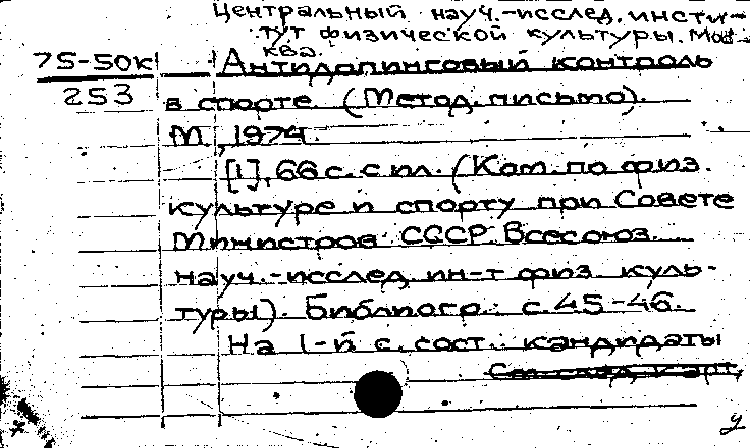 Центральный науч.-исслед. инсти-
тут физической культуры. Мос-
ква.
75-50к
253
Антидопинговый контроль
в спорте (Метод. письмо).
М., 1974.
[1], 66 с. с ил. (Ком. по физ.
культуре и спорту при Совете
Министров СССР. Всесоюз.
науч.-исслед. ин-т физ. куль-
туры). Библиогр.: с. 45-46.
На 1-й с. сост.: кандидаты
См. след. карт.
у